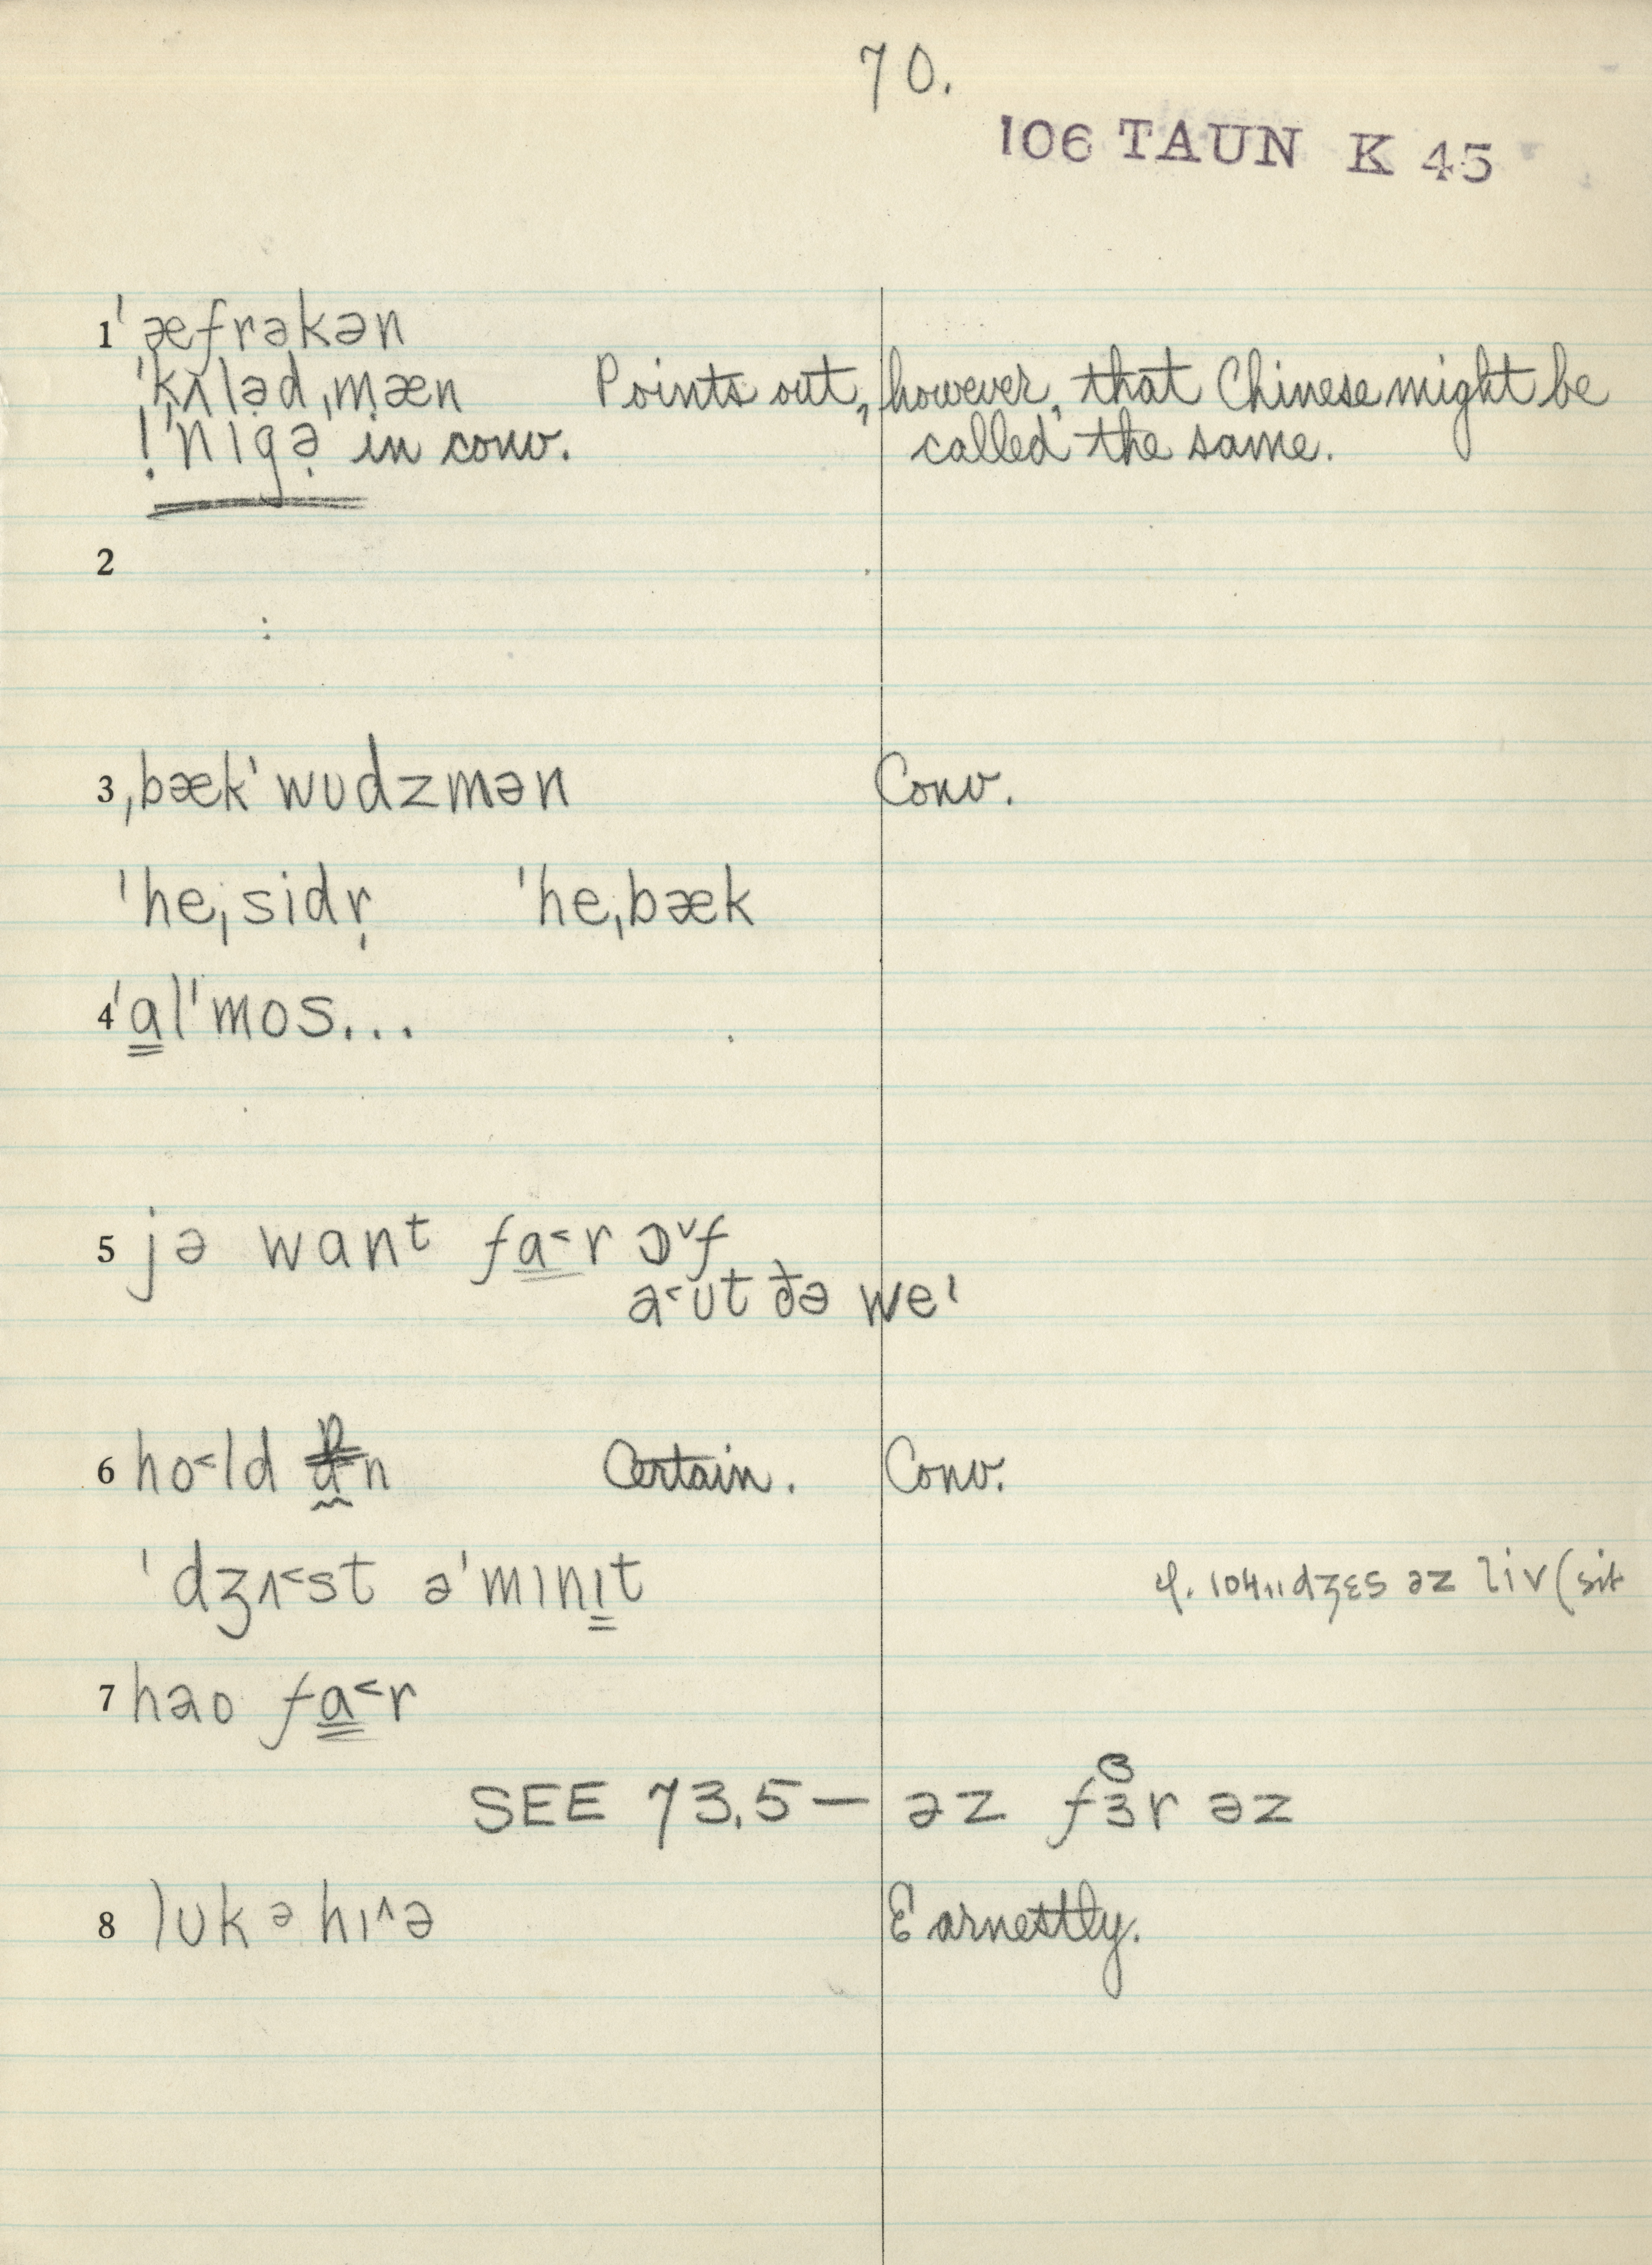 70.
106 TAUN K 45
1 ˈæfrəkən
ˈkʌləd ˌmæn Points out, however, that Chinese might be
!ˈnɪgə in conv. called the same.
2
3 ˌbækˈwudzmən Conv.
ˈheˌsidr̩ ˈheˌbæk
4 ˈa̳lˈmos...
5 jə wanᵗ fa̳˂r ɔ˅f
a˂ut ðə weˈ
6 ho˂ld n Certain. Conv.
ˈdʒʌ˂st əˈmɪnɪ̳t
cf. 104.1 dʒɛs əz liv (sit
7 hao fa̳˂r
SEE 73.5 — əz fɜr əz
8 luk ə hɪ˄ə Earnestly.